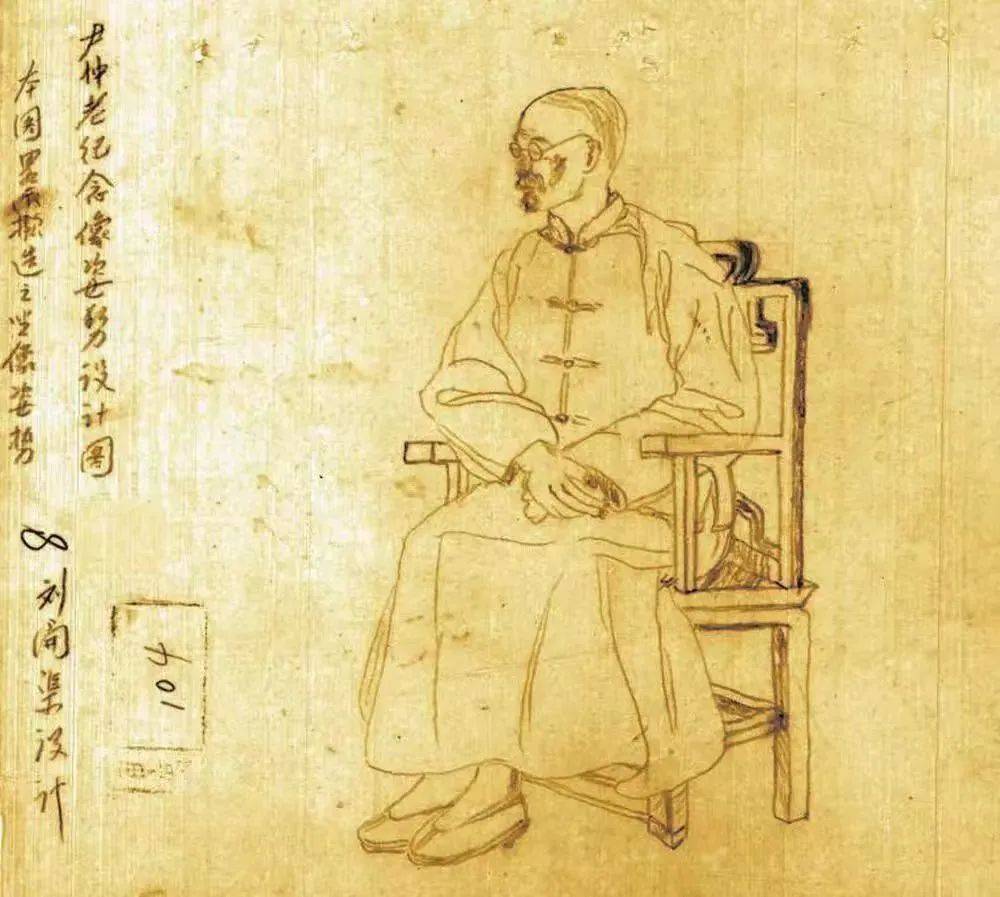 尹仲老纪念像姿势设计图
本图畧示擬造之坐像姿势
8 刘開渠设计
401